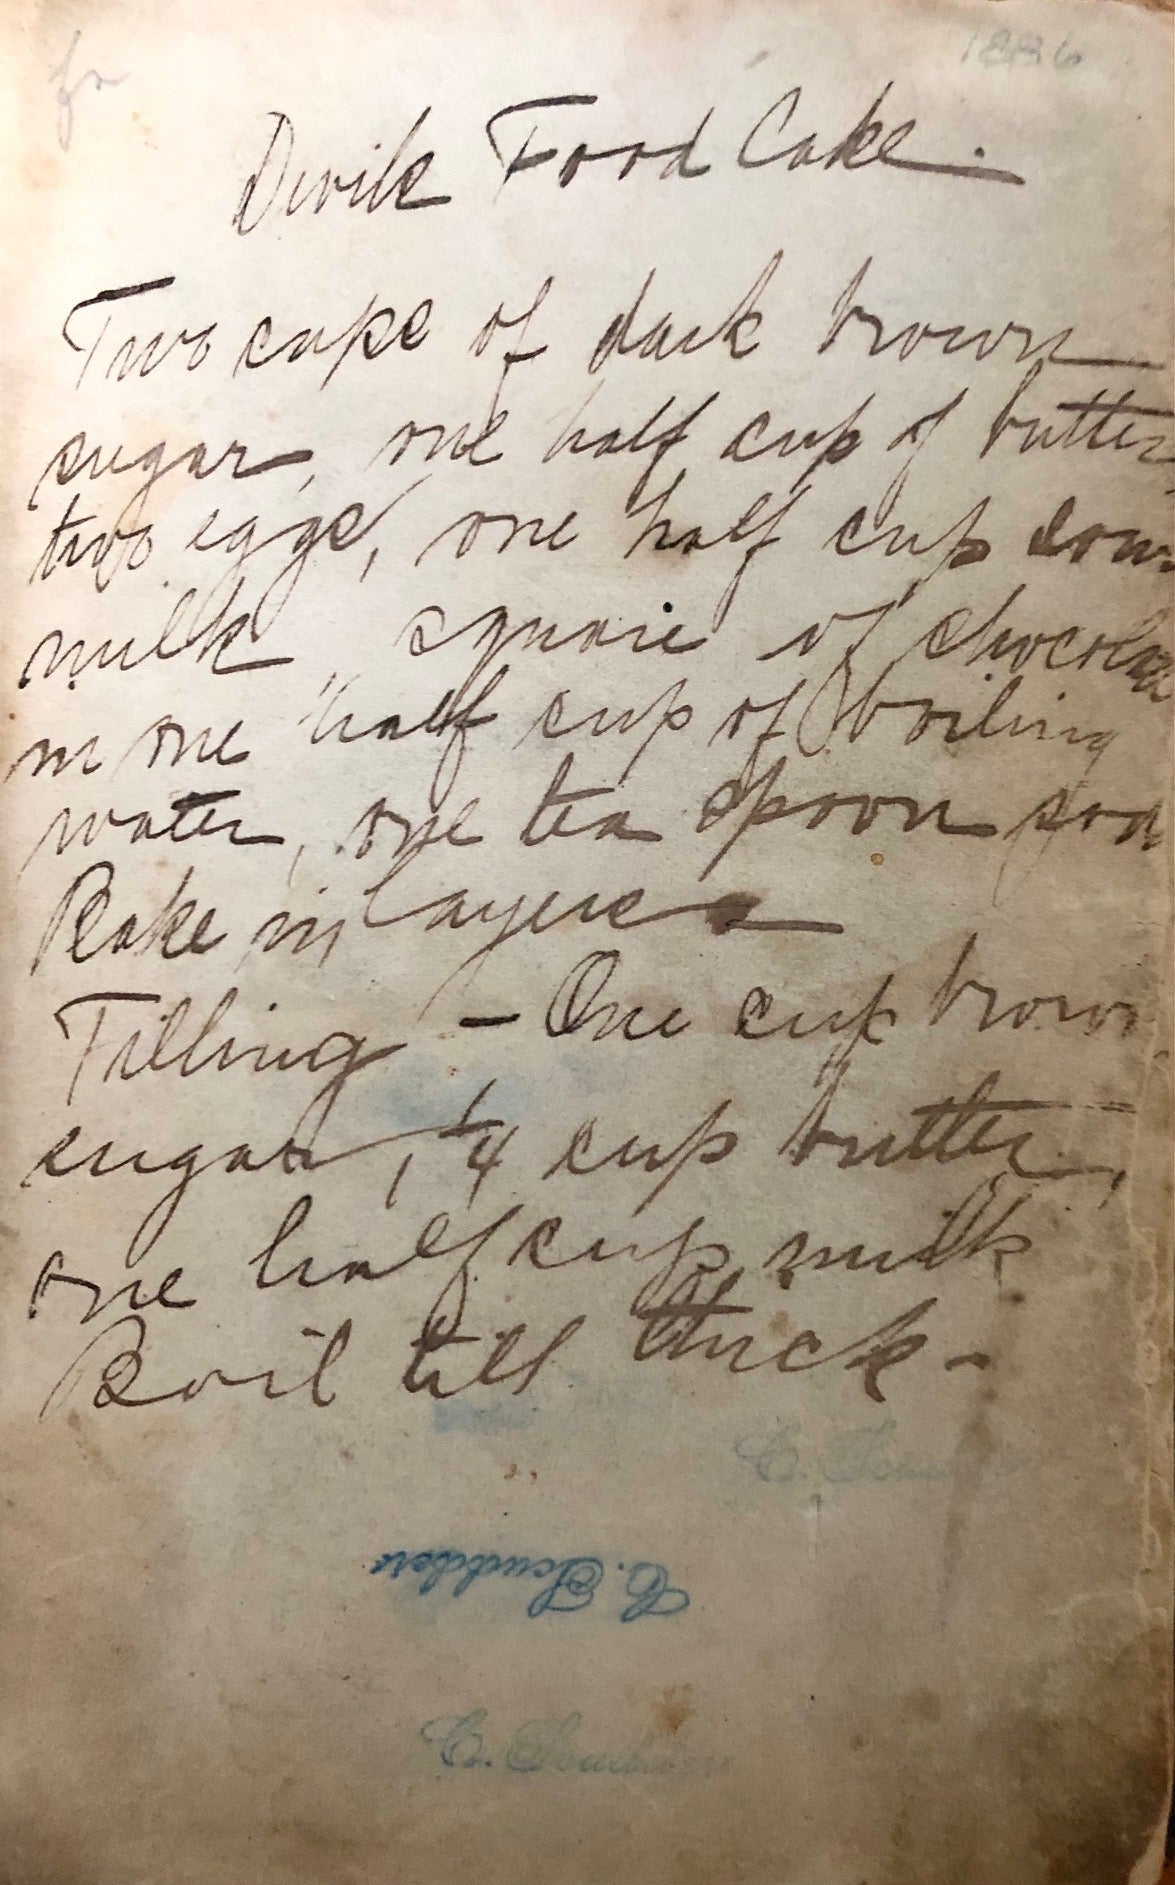 1886
Devils Food Cake.
Two cups of dark brown
sugar, one half cup of butter,
two eggs, one half cup sour
milk, square of chocolate
in one half cup of boiling
water, one tea spoon soda
Bake in layers
Filling - One cup brown
sugar, 1/4 cup butter,
one half cup milk
Boil till thick -
C. Scudder
C. Scudder
C. Scudder